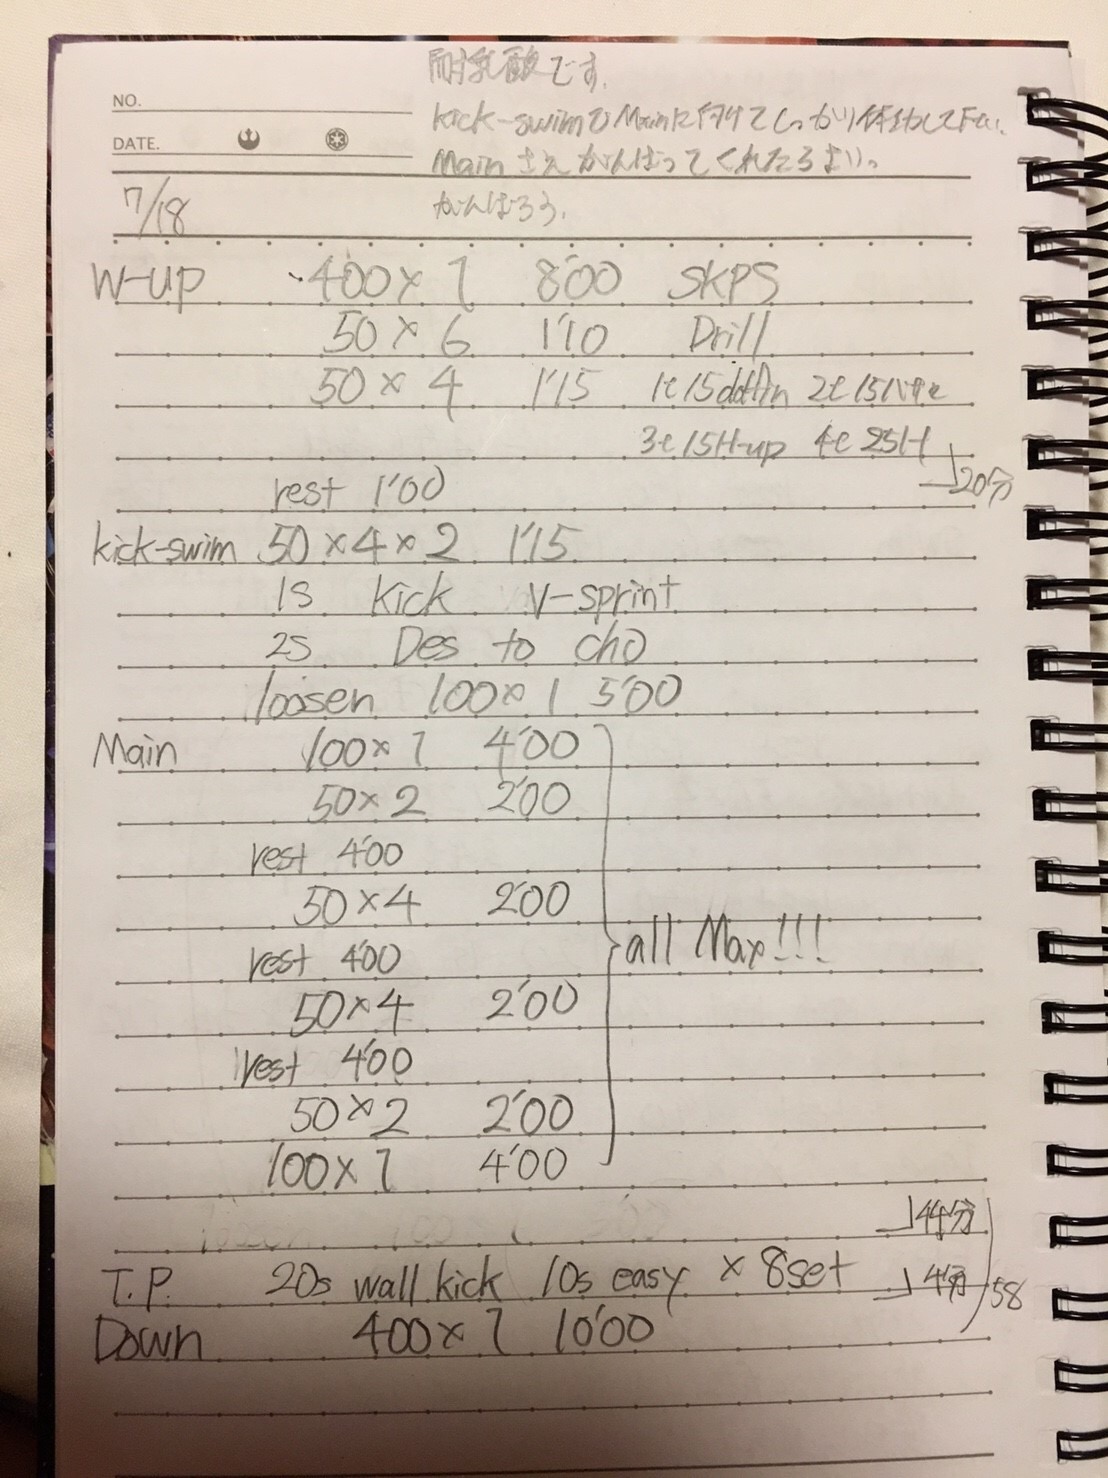 耐乳酸です.
NO.
kick-swimはMainに向けてしっかり体動かして下さい.
DATE.
Mainさえがんばってくれたらよい。
7/18
がんばろう.
W-up 400×1 8'00 SKPS
50×6 1'10 Drill
50×4 1'15 1t 15 2t 15
3t 15H-up 4t 25H
20分
rest 1'00
kick-swim 50×4×2 1'15
1s kick V-sprint
2s Des to cho
loosen 100×1 5'00
Main 100×1 4'00
50×2 2'00
rest 4'00
50×4 2'00
all Max!!!
rest 4'00
50×4 2'00
rest 4'00
50×2 2'00
100×1 4'00
44分
T.P. 20s wall kick 10s easy ×8set 4分 58
Down 400×1 10'00